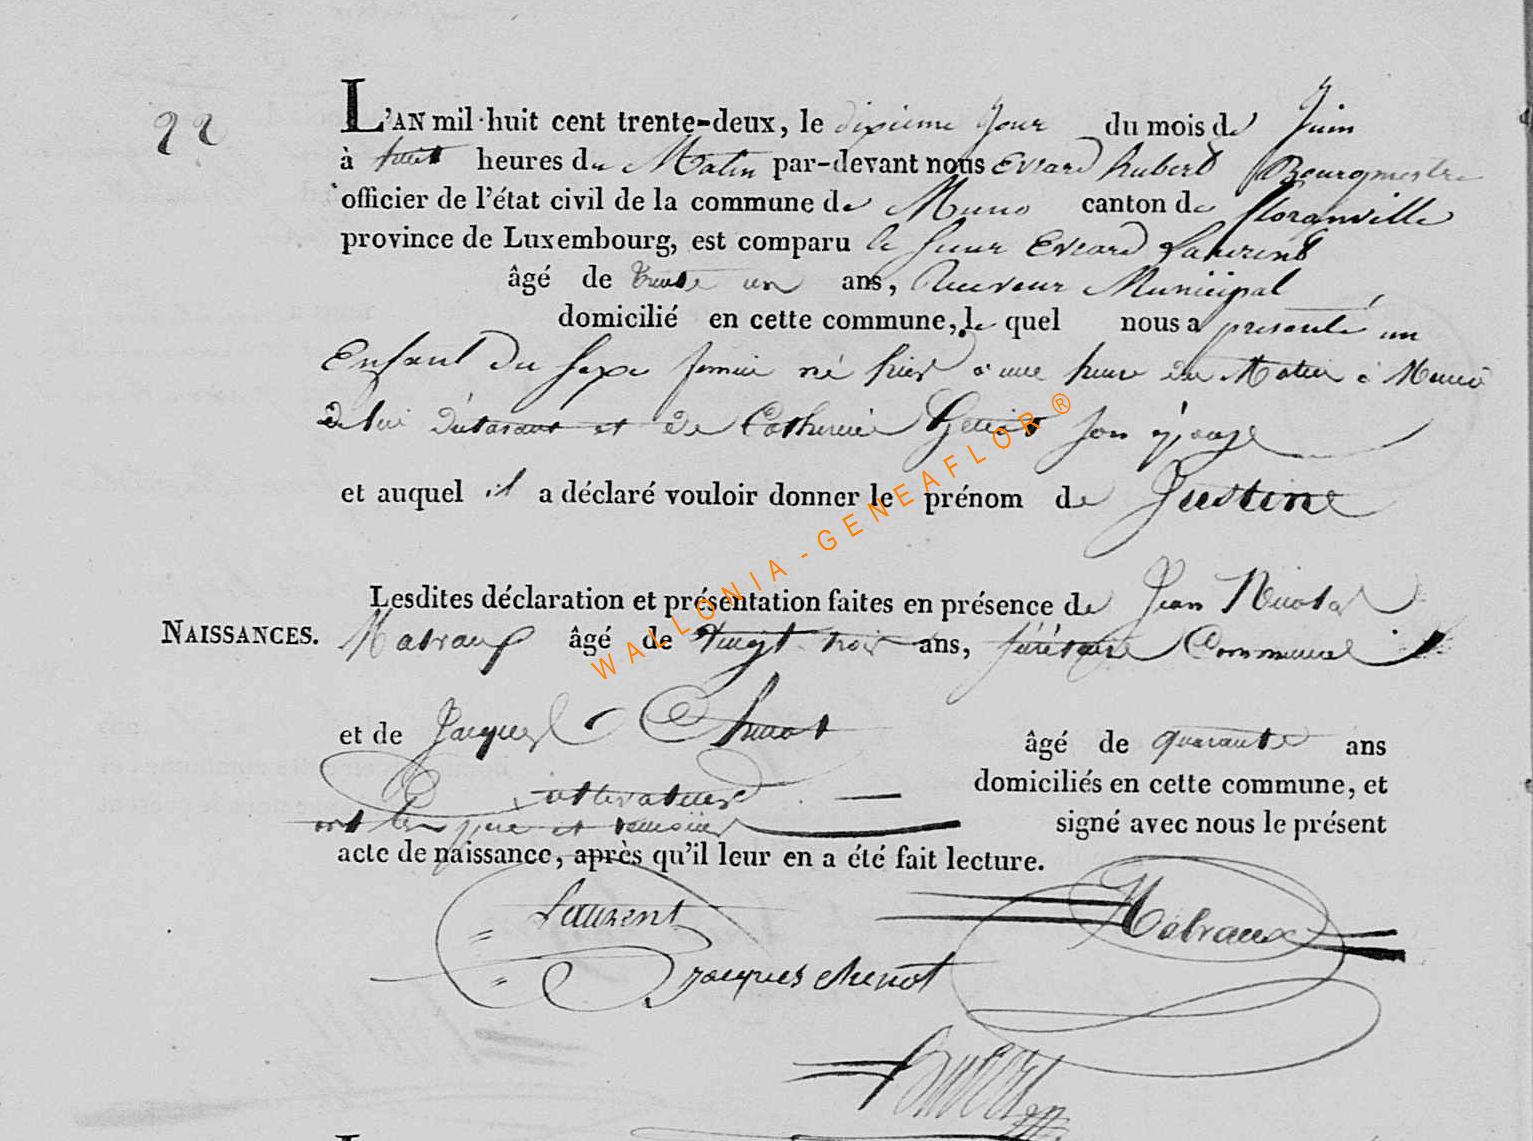 22
L'AN mil-huit cent trente-deux, le dixieme Jour du mois de Juin
à huit heures du Matin par-devant nous Evrard hubert Bourgmestre
officier de l'état civil de la commune de Muno canton de floranville
province de Luxembourg, est comparu le sieur Evrard Laurent
âgé de trente un ans, Receveur Municipal
domicilié en cette commune, le quel nous a presenté un
Enfant du sexe feminin né hier à une heure du Matin à Muno
de lui déclarant et de Catherine son épouse
et auquel il a déclaré vouloir donner le prénom de Justine
Lesdites déclaration et présentation faites en présence de Jean Nicolas
NAISSANCES.
âgé de vingt trois ans, secrétaire Communal
et de Jacques Chenot âgé de quarante ans
Cultivateur domiciliés en cette commune, et
ont les père et temoins signé avec nous le présent
acte de naissance, après qu'il leur en a été fait lecture.
Laurent
jacques chenot
WALLONIA - GENEAFLOR ®